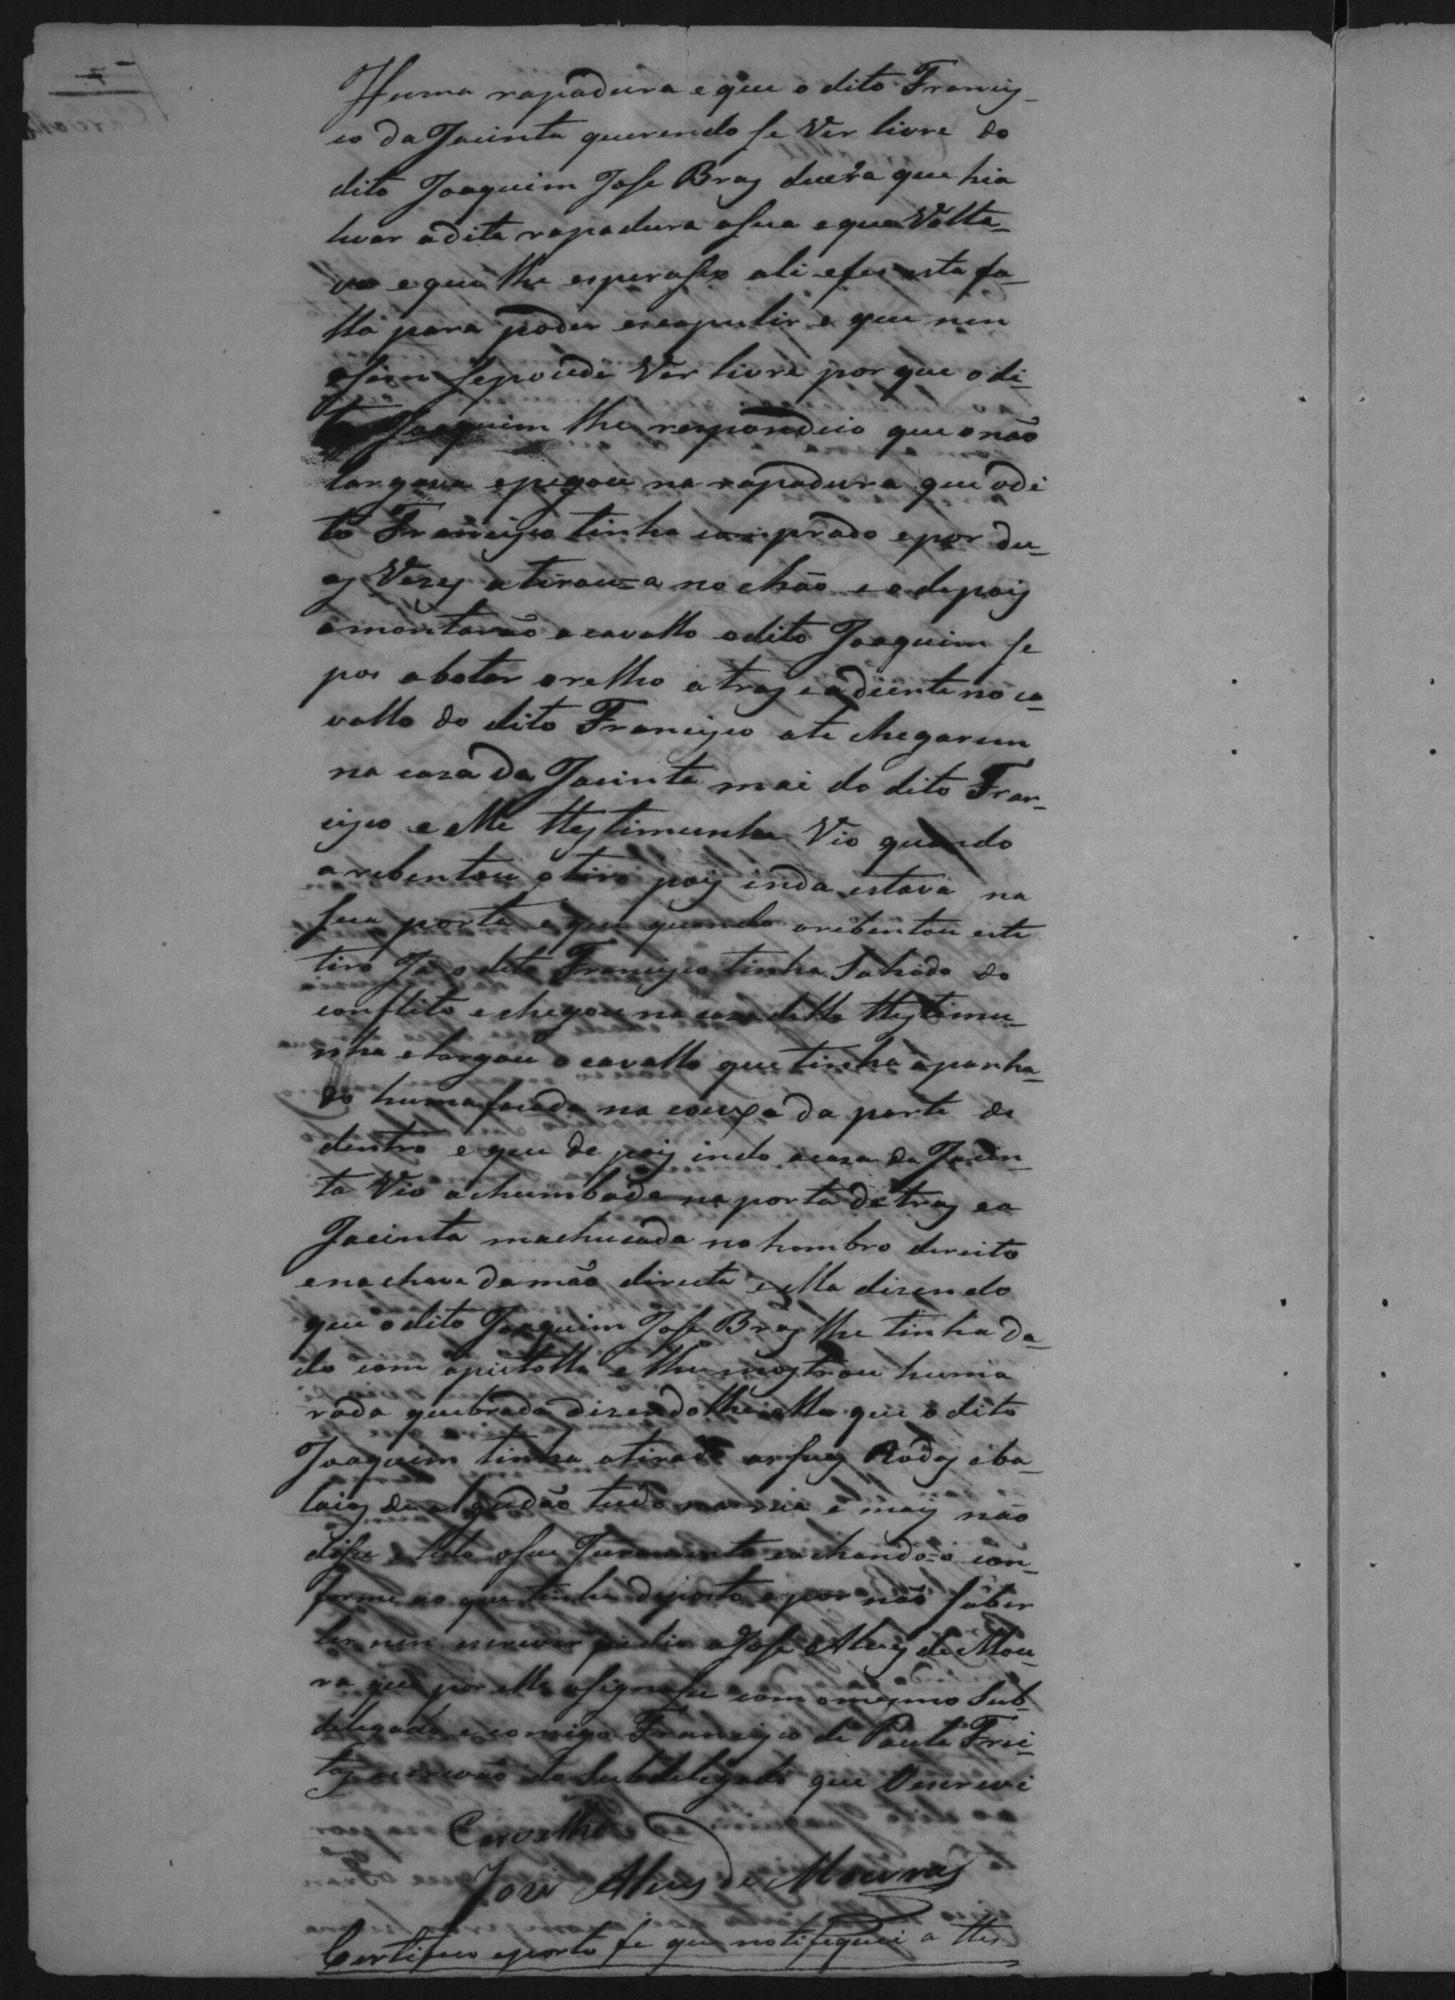 Huma rapadura e que o dito Francis-
co da Jacinta querendo se Ver livre do
dito Joaquim Jose Bras dicera que hia
levar a dita rapadura a sua e que Volta-
va e que lhe esperasse ali e fes esta fa-
lla para poder escapulir e que nem
asim se poude Ver livre por que o di-
to Joaquim lhe respondeio que o não
largava e pegou na rapadura que o di
to Francisco tinha comprado e por du-
as Vezes atirou=a no chão e o depois
amontarão a cavallo o dito Joaquim se
pos a botar o relho a tras e a diente no ca-
vallo do dito Francisco ate chegarem
na caza da Jacinta mai do dito Fran-
cisco e elle ttestimunha Vio quando
arebentou o tiro pois inda estava na
sua porta e que quando arebentou este
tiro Ja o dito Francisco tinha Sahido do
conflito e chegou na caza delle ttestimu-
nha e largou o cavallo que tinha apanha-
do huma facada na couxa da parte de
dentro e que de pois indo a caza da Jacin-
ta Vio a chumbada na porta de tras e a
Jacinta machucada no hombro direito
e na chave da mão direita e ella dizendo
que o dito Joaquim Jose Bras lhe tinha da-
do com a pistolla e lhe mostrou huma
roda quebrada dizendo lhe ella que o dito
Joaquim tinha atirado as suas Rodas e ba-
laios de algudão tudo na rua e mais não
dise e lido o seu Juramento e achando=o con-
forme ao que tinha deposto e por não saber
ler nem escrever pedio a Jose Alves de Mou-
ra que por elle asignase com o mesmo Sub
delegado e comigo Francisco de Paula Frei-
tas escrivão do Subdelegado que Oescrevi
Carvalho
Jose Alves de Moura
Certifico e porto fe que notifiquei a ttes